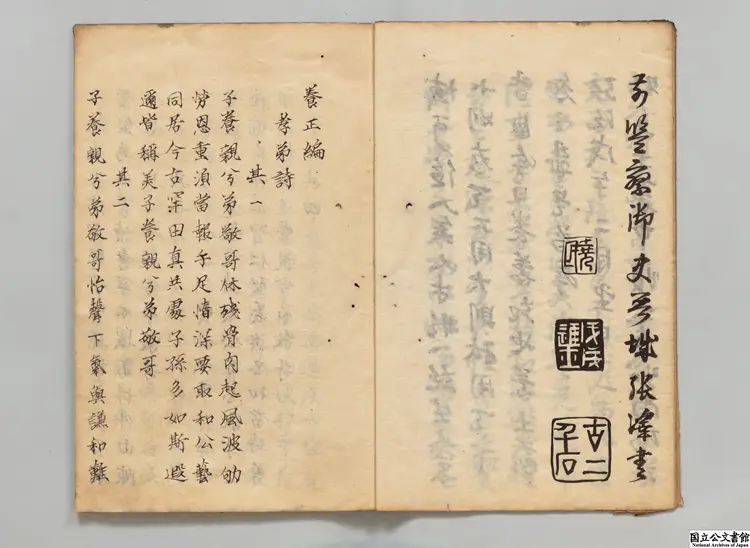 前監察御史晉城張準書
戊戌進士
養正編
孝弟詩
其一
子養親兮弟敬哥休殘骨肉起風波劬
勞恩重湏當報手足情深要取和公藝
同居今古罕田真共處子孫多如斯遐
邇皆稱美子養親兮弟敬哥
其二
子養親兮弟敬哥怡聲下氣與謙和難
国立公文書館
National Archives of Japan